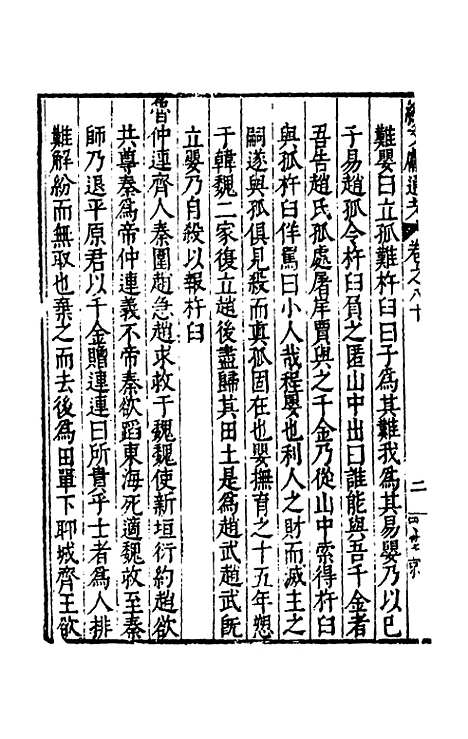 續文獻通考 卷之八十 二
難嬰曰立孤難杵臼曰子爲其難我爲其易嬰乃以己
子易趙孤令杵臼負之匿山中出曰誰能與吾千金者
吾告趙氏孤處屠岸賈與之千金乃從山中索得杵臼
與孤杵臼佯罵曰小人哉程嬰也利人之財而滅主之
嗣遂與孤俱見殺而真孤固在也嬰撫育之十五年愬
于韓魏二家復立趙後盡歸其田土是爲趙武趙武旣
立嬰乃自殺以報杵臼
魯仲連齊人秦圍趙急趙求救于魏魏使新垣衍約趙欲
共尊秦爲帝仲連義不帝秦欲蹈東海死適魏救至秦
師乃退平原君以千金贈連連曰所貴乎士者爲人排
難解紛而無取也棄之而去後爲田單下聊城齊王欲